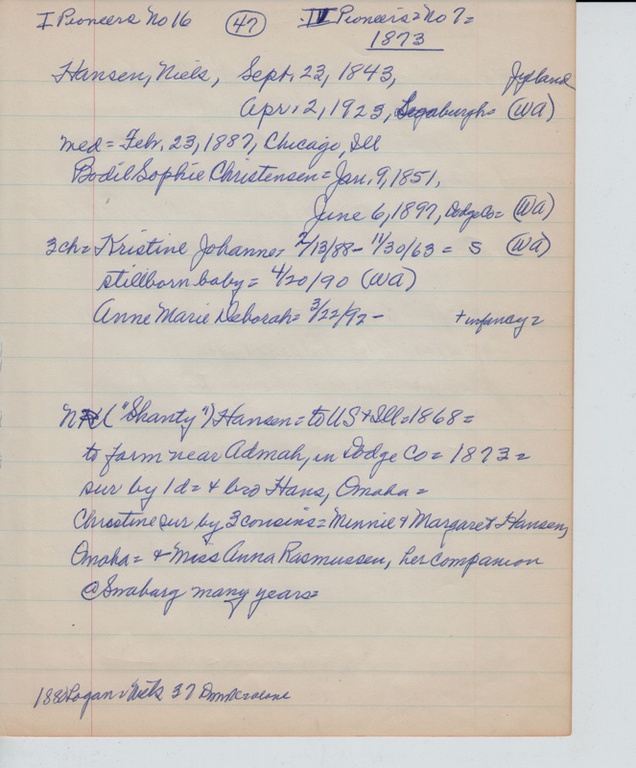 I Pioneers No 16 (47) IV Pioneers = No 7 =
1873
Hansen, Niels, Sept. 23, 1843, Jylland
Apr. 2, 1923, (WA)
med = Febr. 23, 1887, Chicago, Ill
Bodil Sophie Christensen = Jan. 9, 1851,
June 6, 1897, Dodge Co = (WA)
3ch = Kristine Johanne = 2/13/88 - 11/30/63 = S (WA)
stillborn baby = 4/20/90 (WA)
Anne Marie Deborah = 3/22/92 - + infancy =
("Shanty") Hansen = to US + Ill = 1868 =
to farm near Admah, in Dodge Co = 1873 =
sur by 1d = + bro Hans, Omaha =
Christine sur by 3 cousins = Minnie & Margaret Hansen,
Omaha = + Miss Anna Rasmussen, her companion
@ many years =
Logan = 37